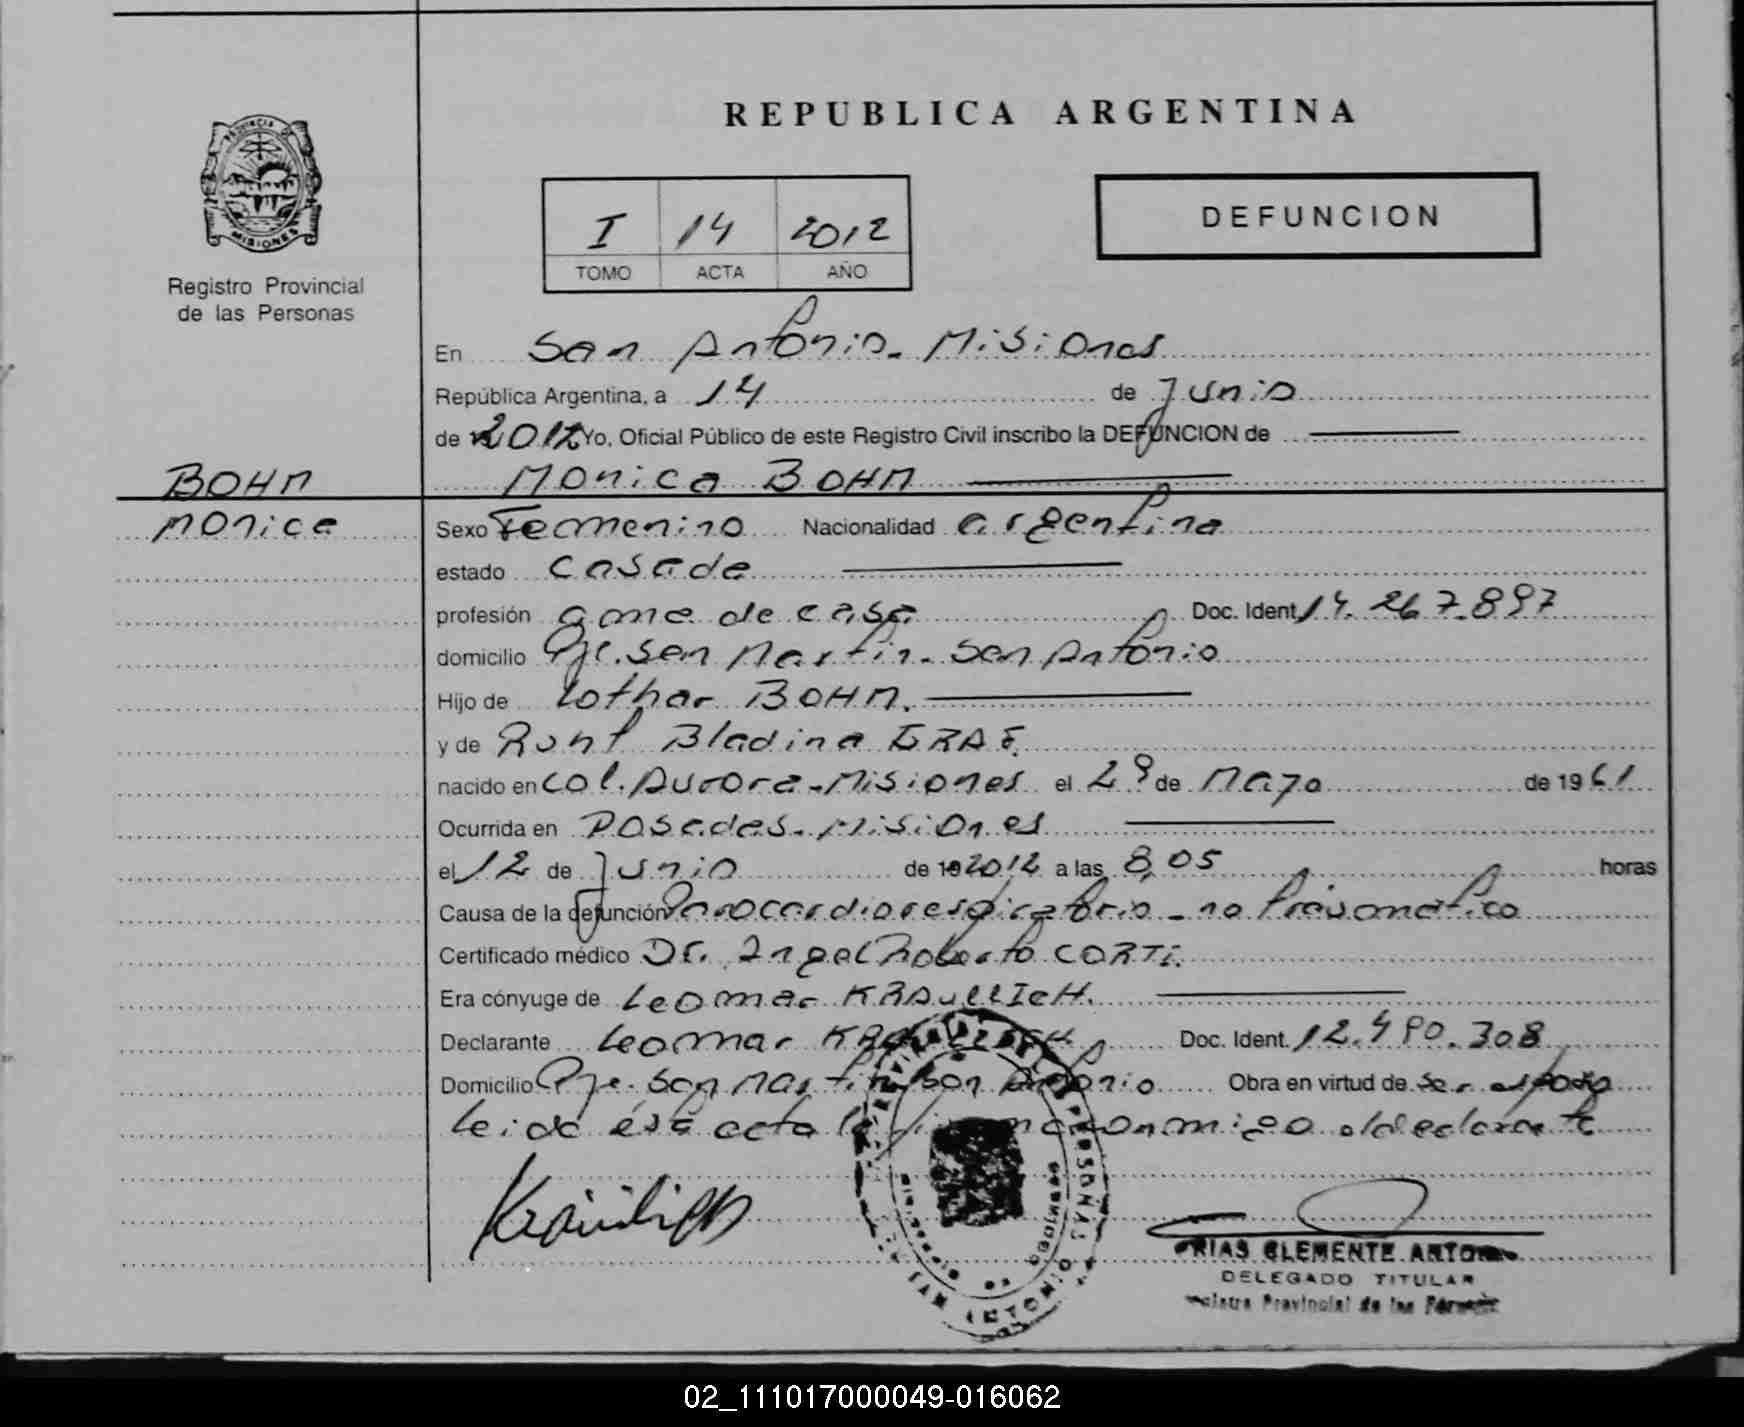 REPUBLICA ARGENTINA
PROVINCIA DE
MISIONES
Registro Provincial
de las Personas
I 14 2012
TOMO ACTA AÑO
DEFUNCION
En San Antonio - Misiones
República Argentina, a 14 de Junio
de 2012 Yo, Oficial Público de este Registro Civil inscribo la DEFUNCION de
BOHM
Monica BOHM
Monica
Sexo Femenino Nacionalidad argentina
estado casada
profesión ama de casa Doc. Ident. 14.267.897
domicilio Pje. San Martin - San Antonio
Hijo de Lothar BOHM.
y de Runt Bladina GRAF.
nacido en Col. Aurora - Misiones el 29 de Mayo de 1961
Ocurrida en Posadas - Misiones
el 12 de Junio de 192012 a las 8,05 horas
Causa de la defunción Parocardiorespiratorio - no traumatico
Certificado médico Dr. Angel Roberto CORTI.
Era cónyuge de Leomar KRAULLICH.
Declarante Leomar Doc. Ident. 12.490.308
Domicilio Pje. San Martin San Antonio Obra en virtud de ser esposo
Leida esta acta la firma conmigo el declarante
FRIAS CLEMENTE ANTONIO
DELEGADO TITULAR
Registro Provincial de las Personas
SAN ANTONIO
02_111017000049-016062